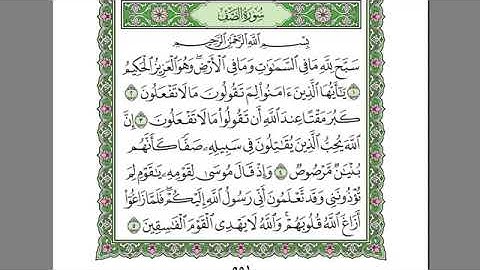 سُورَةُ الصَّفِّ
بِسْمِ اللَّهِ الرَّحْمَٰنِ الرَّحِيمِ
سَبَّحَ لِلَّهِ مَا فِي السَّمَٰوَٰتِ وَمَا فِي الْأَرْضِ ۖ وَهُوَ الْعَزِيزُ الْحَكِيمُ
١ يَٰٓأَيُّهَا الَّذِينَ ءَامَنُوا لِمَ تَقُولُونَ مَا لَا تَفْعَلُونَ ٢
كَبُرَ مَقْتًا عِندَ اللَّهِ أَن تَقُولُوا مَا لَا تَفْعَلُونَ ٣ إِنَّ
اللَّهَ يُحِبُّ الَّذِينَ يُقَٰتِلُونَ فِي سَبِيلِهِ صَفًّا كَأَنَّهُم
بُنْيَٰنٌ مَّرْصُوصٌ ٤ وَإِذْ قَالَ مُوسَىٰ لِقَوْمِهِ يَٰقَوْمِ لِمَ
تُؤْذُونَنِي وَقَد تَّعْلَمُونَ أَنِّي رَسُولُ اللَّهِ إِلَيْكُمْ ۖ فَلَمَّا زَاغُوا
أَزَاغَ اللَّهُ قُلُوبَهُمْ ۚ وَاللَّهُ لَا يَهْدِي الْقَوْمَ الْفَٰسِقِينَ ٥
٥٥١